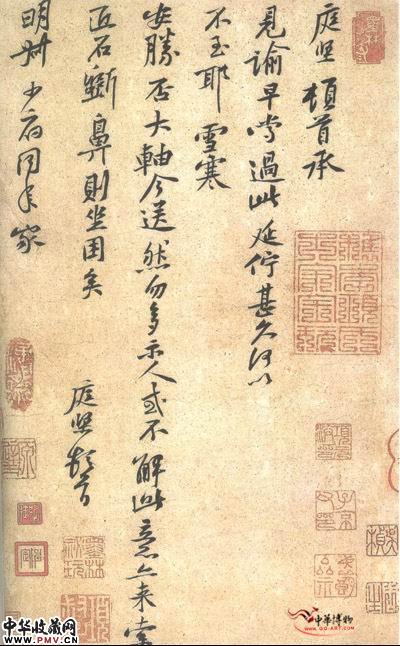 庭坚顿首承
見諭早嘗過此延佇甚久何以
不至耶雪寒
安勝否大軸今送然勿多示人或不解此意亦来索
匠石斲鼻則坐困矣
庭坚顿首
明叔少府同年家
中华收藏网
WWW.PMV.CN
中華博物
WWW.GG-ART.COM